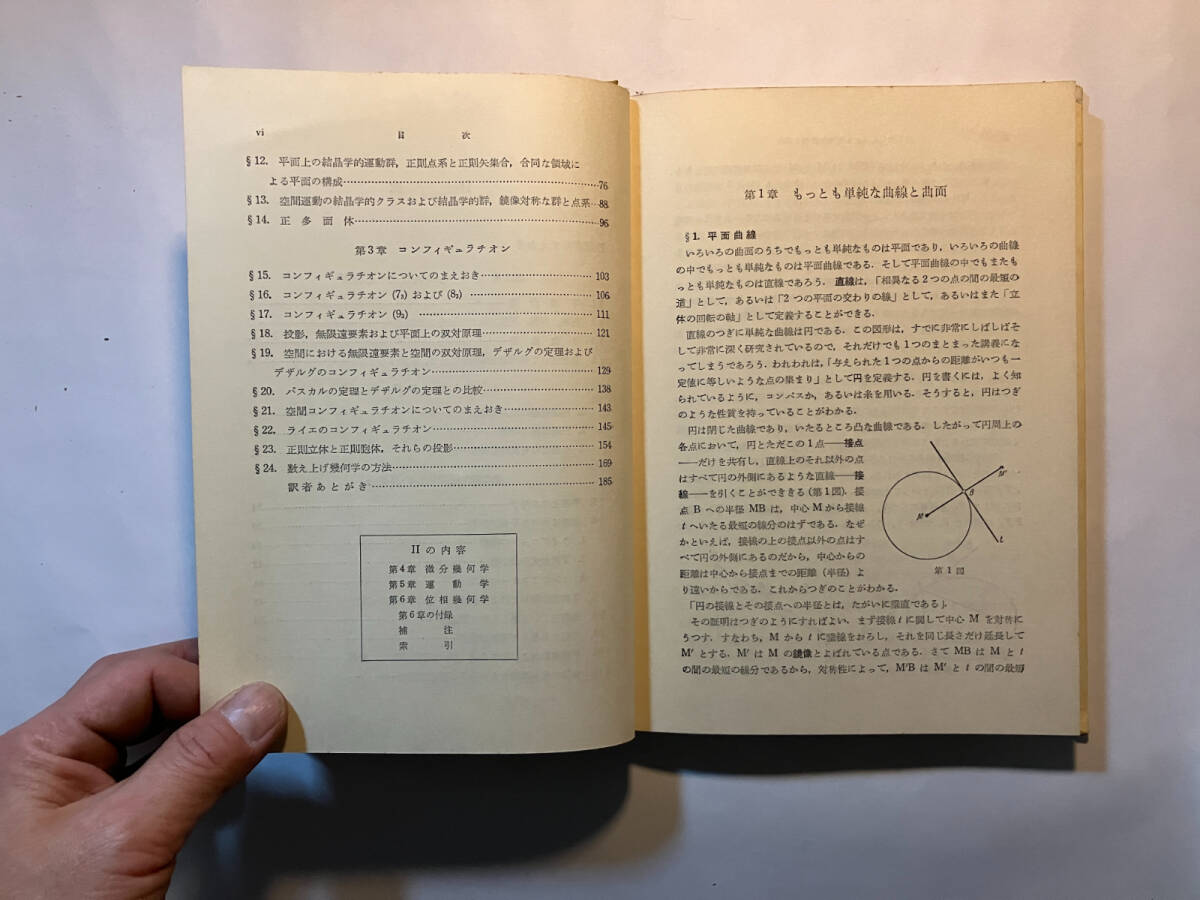 vi 目 次
§12. 平面上の結晶学的運動群，正則点系と正則矢集合，合同な領域に
よる平面の構成……76
§13. 空間運動の結晶学的クラスおよび結晶学的群，鏡像対称な群と点系…88
§14. 正多面体……96
第3章 コンフィギュラチオン
§15. コンフィギュラチオンについてのまえおき……103
§16. コンフィギュラチオン (7₃) および (8₃)……106
§17. コンフィギュラチオン (9₃)……111
§18. 投影，無限遠要素および平面上の双対原理……121
§19. 空間における無限遠要素と空間の双対原理，デザルグの定理および
デザルグのコンフィギュラチオン……129
§20. パスカルの定理とデザルグの定理との比較……138
§21. 空間コンフィギュラチオンについてのまえおき……143
§22. ライエのコンフィギュラチオン……145
§23. 正則立体と正則胞体，それらの投影……154
§24. 数え上げ幾何学の方法……169
訳者あとがき……185
IIの内容
第4章 微分幾何学
第5章 運動学
第6章 位相幾何学
第6章の付録
補注
索引
第1章 もっとも単純な曲線と曲面
§1. 平面曲線
いろいろの曲面のうちでもっとも単純なものは平面であり，いろいろの曲線
の中でもっとも単純なものは平面曲線である．そして平面曲線の中でもまたも
っとも単純なものは直線であろう．直線は，「相異なる2つの点の間の最短の
道」として，あるいは「2つの平面の交わりの線」として，あるいはまた「立
体の回転の軸」として定義することができる．
直線のつぎに単純な曲線は円である．この図形は，すでに非常にしばしばそ
して非常に深く研究されているので，それだけでも1つのまとまった講義にな
ってしまうであろう．われわれは，「与えられた1つの点からの距離がいつも一
定値に等しいような点の集まり」として円を定義する．円を書くには，よく知
られているように，コンパスか，あるいは糸を用いる．そうすると，円はつぎ
のような性質を持っていることがわかる．
円は閉じた曲線であり，いたるところ凸な曲線である．したがって円周上の
各点において，円とただこの1点——接点
——だけを共有し，直線上のそれ以外の点
はすべて円の外側にあるような直線——接
線——を引くことができきる (第1図)．接
点Bへの半径MBは，中心Mから接線
tへいたる最短の線分のはずである．なぜ
かといえば，接線の上の接点以外の点はす
べて円の外側にあるのだから，中心からの
距離は中心から接点までの距離 (半径) よ
り遠いからである．これからつぎのことがわかる．
M' B M t
第1図
「円の接線とその接点への半径とは，たがいに垂直である」．
その証明はつぎのようにすればよい．まず接線tに関して中心Mを対称に
うつす．すなわち，Mからtに垂線をおろし，それを同じ長さだけ延長して
M'とする．M'はMの鏡像とよばれている点である．さてMBはMとt
の間の最短の線分であるから，対称性によって，M'BはM'とtの間の最短